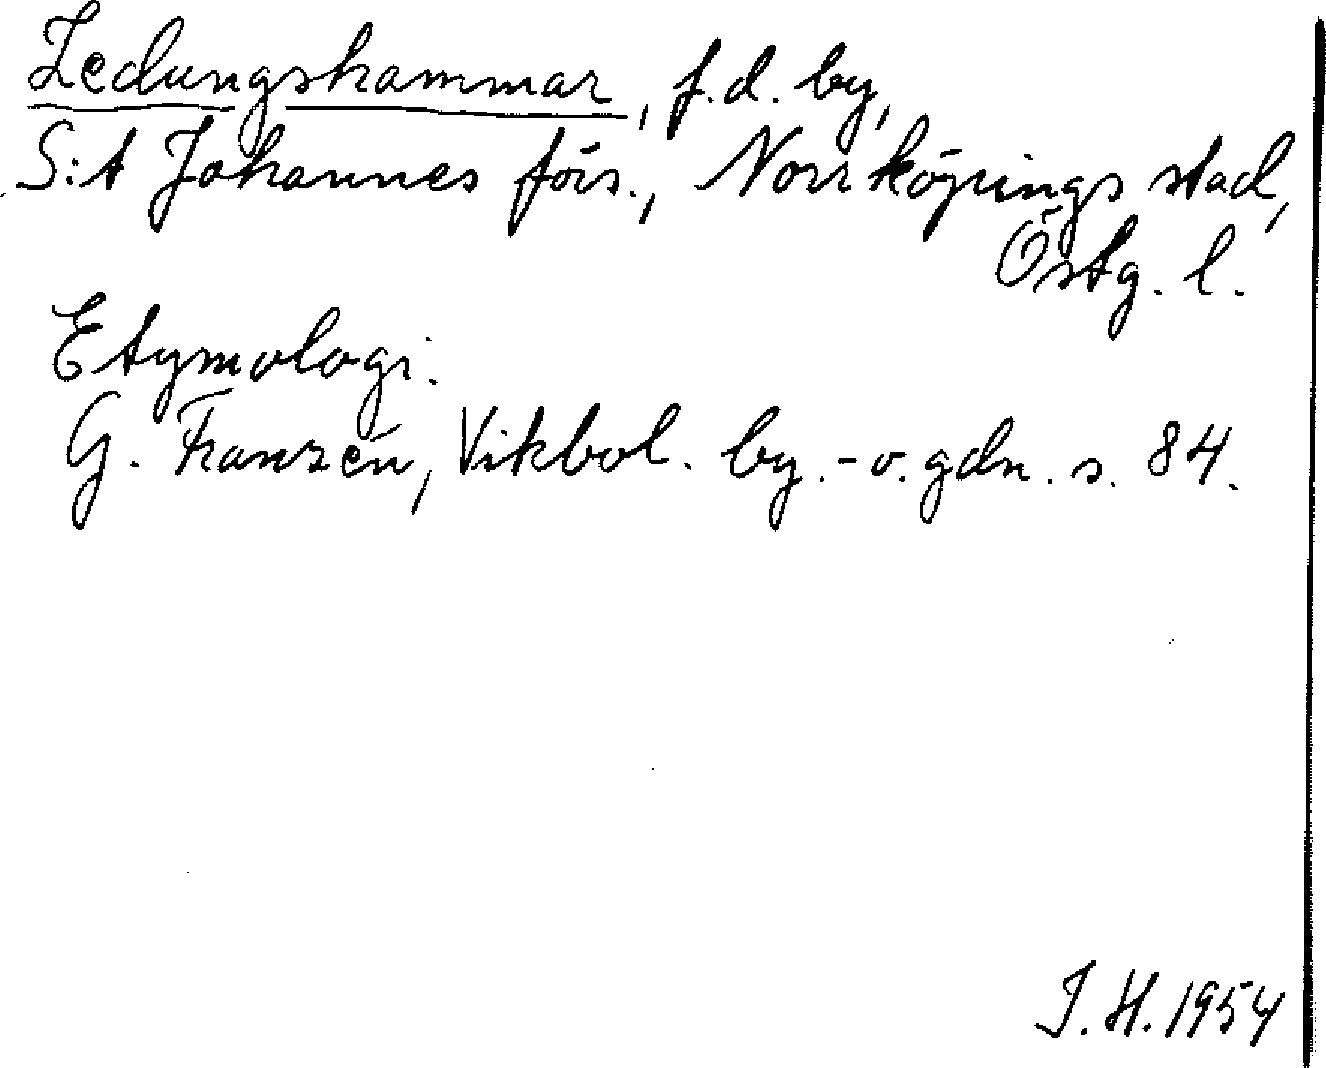 Ledungshammar, f.d. by,
S:t Johannes förs., Norrköpings stad,
Östg. l.
Etymologi.
G. Franzén, Vikbol. by.- o. gdn. s. 84.
I. H. 1954